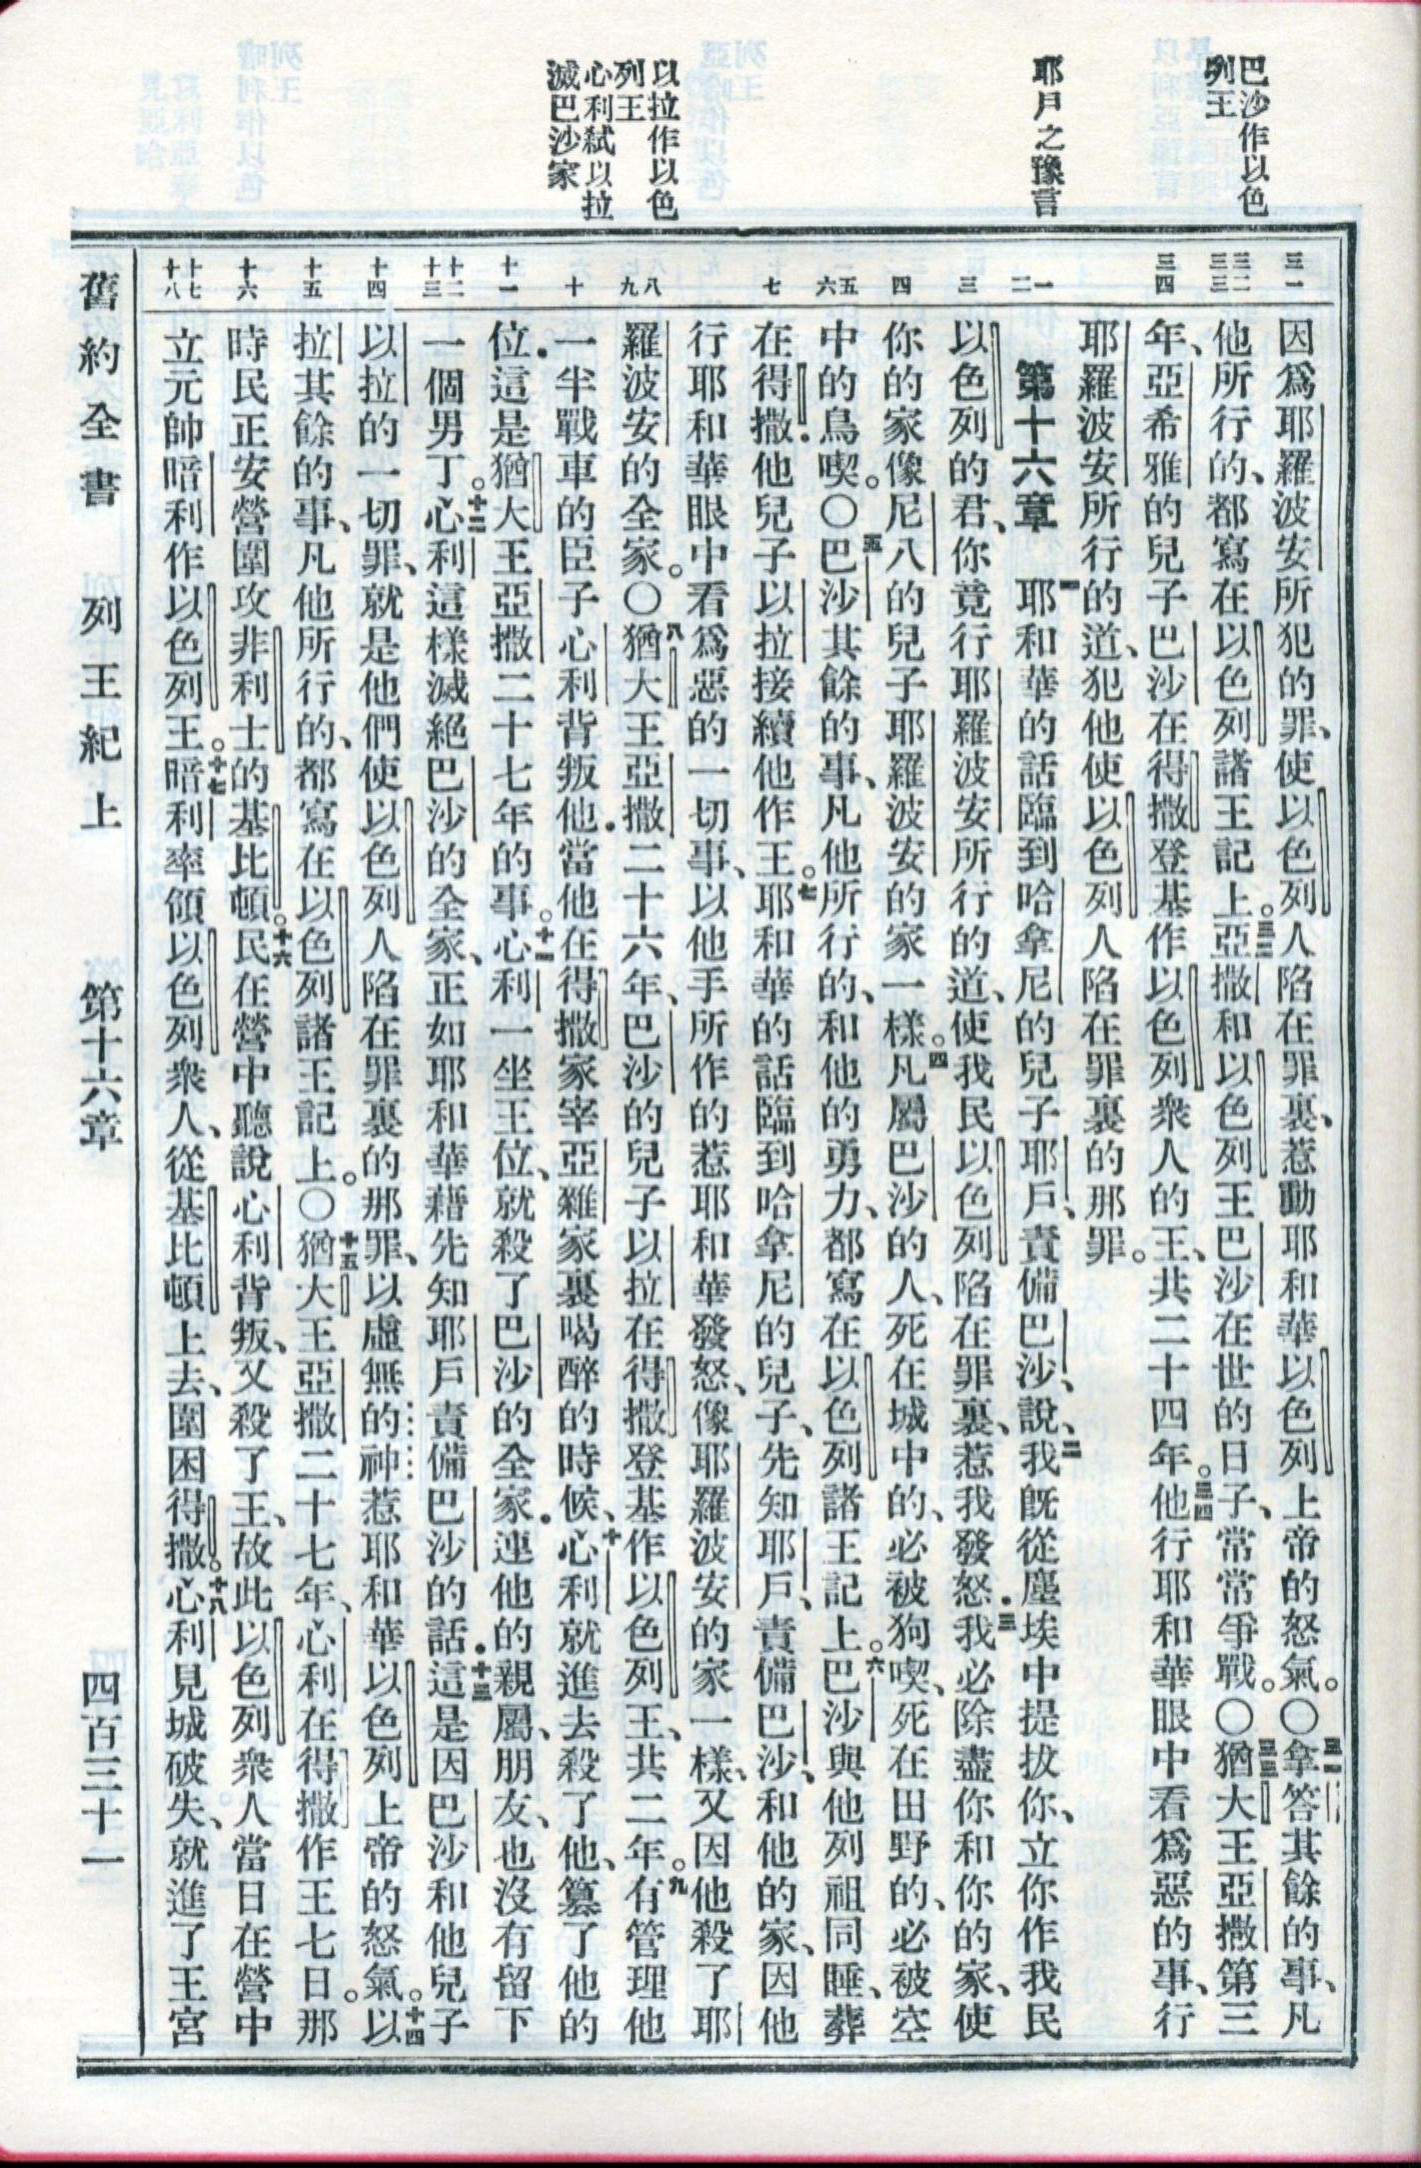 巴沙作以色
列王
耶戶之豫言
以拉作以色
列王
心利弑以拉
滅巴沙家
三一
三二
三三
三四
一
二
三
四
五
六
七
八
九
十
十一
十二
十三
十四
十五
十六
十七
十八
因爲耶羅波安所犯的罪、使以色列人陷在罪裏、惹動耶和華以色列上帝的怒氣。○三一拿答其餘的事、凡
他所行的、都寫在以色列諸王記上。三二亞撒和以色列王巴沙在世的日子、常常爭戰。○三三猶大王亞撒第三
年、亞希雅的兒子巴沙在得撒登基作以色列衆人的王、共二十四年。三四他行耶和華眼中看爲惡的事、行
耶羅波安所行的道、犯他使以色列人陷在罪裏的那罪。
第十六章 一耶和華的話臨到哈拿尼的兒子耶戶、責備巴沙、說、二我旣從塵埃中提拔你、立你作我民
以色列的君、你竟行耶羅波安所行的道、使我民以色列陷在罪裏、惹我發怒．三我必除盡你和你的家、使
你的家像尼八的兒子耶羅波安的家一樣。四凡屬巴沙的人、死在城中的、必被狗喫、死在田野的、必被空
中的鳥喫。○五巴沙其餘的事、凡他所行的、和他的勇力、都寫在以色列諸王記上。六巴沙與他列祖同睡、葬
在得撒．他兒子以拉接續他作王。七耶和華的話臨到哈拿尼的兒子、先知耶戶、責備巴沙、和他的家、因他
行耶和華眼中看爲惡的一切事、以他手所作的惹耶和華發怒、像耶羅波安的家一樣、又因他殺了耶
羅波安的全家。○八猶大王亞撒二十六年、巴沙的兒子以拉在得撒登基作以色列王、共二年。九有管理他
一半戰車的臣子心利背叛他．當他在得撒家宰亞雜家裏喝醉的時候、十心利就進去殺了他、簒了他的
位．這是猶大王亞撒二十七年的事。十一心利一坐王位、就殺了巴沙的全家．連他的親屬、朋友、也沒有留下
一個男丁。十二心利這樣滅絕巴沙的全家、正如耶和華藉先知耶戶責備巴沙的話．十三這是因巴沙和他兒子
以拉的一切罪、就是他們使以色列人陷在罪裏的那罪、以虛無的神惹耶和華以色列上帝的怒氣。十四以
拉其餘的事、凡他所行的、都寫在以色列諸王記上。○十五猶大王亞撒二十七年、心利在得撒作王七日。那
時民正安營圍攻非利士的基比頓。十六民在營中聽說心利背叛、又殺了王、故此以色列衆人當日在營中
立元帥暗利作以色列王。十七暗利率領以色列衆人、從基比頓上去、圍困得撒。十八心利見城破失、就進了王宮
舊約全書 列王紀上 第十六章 四百三十一